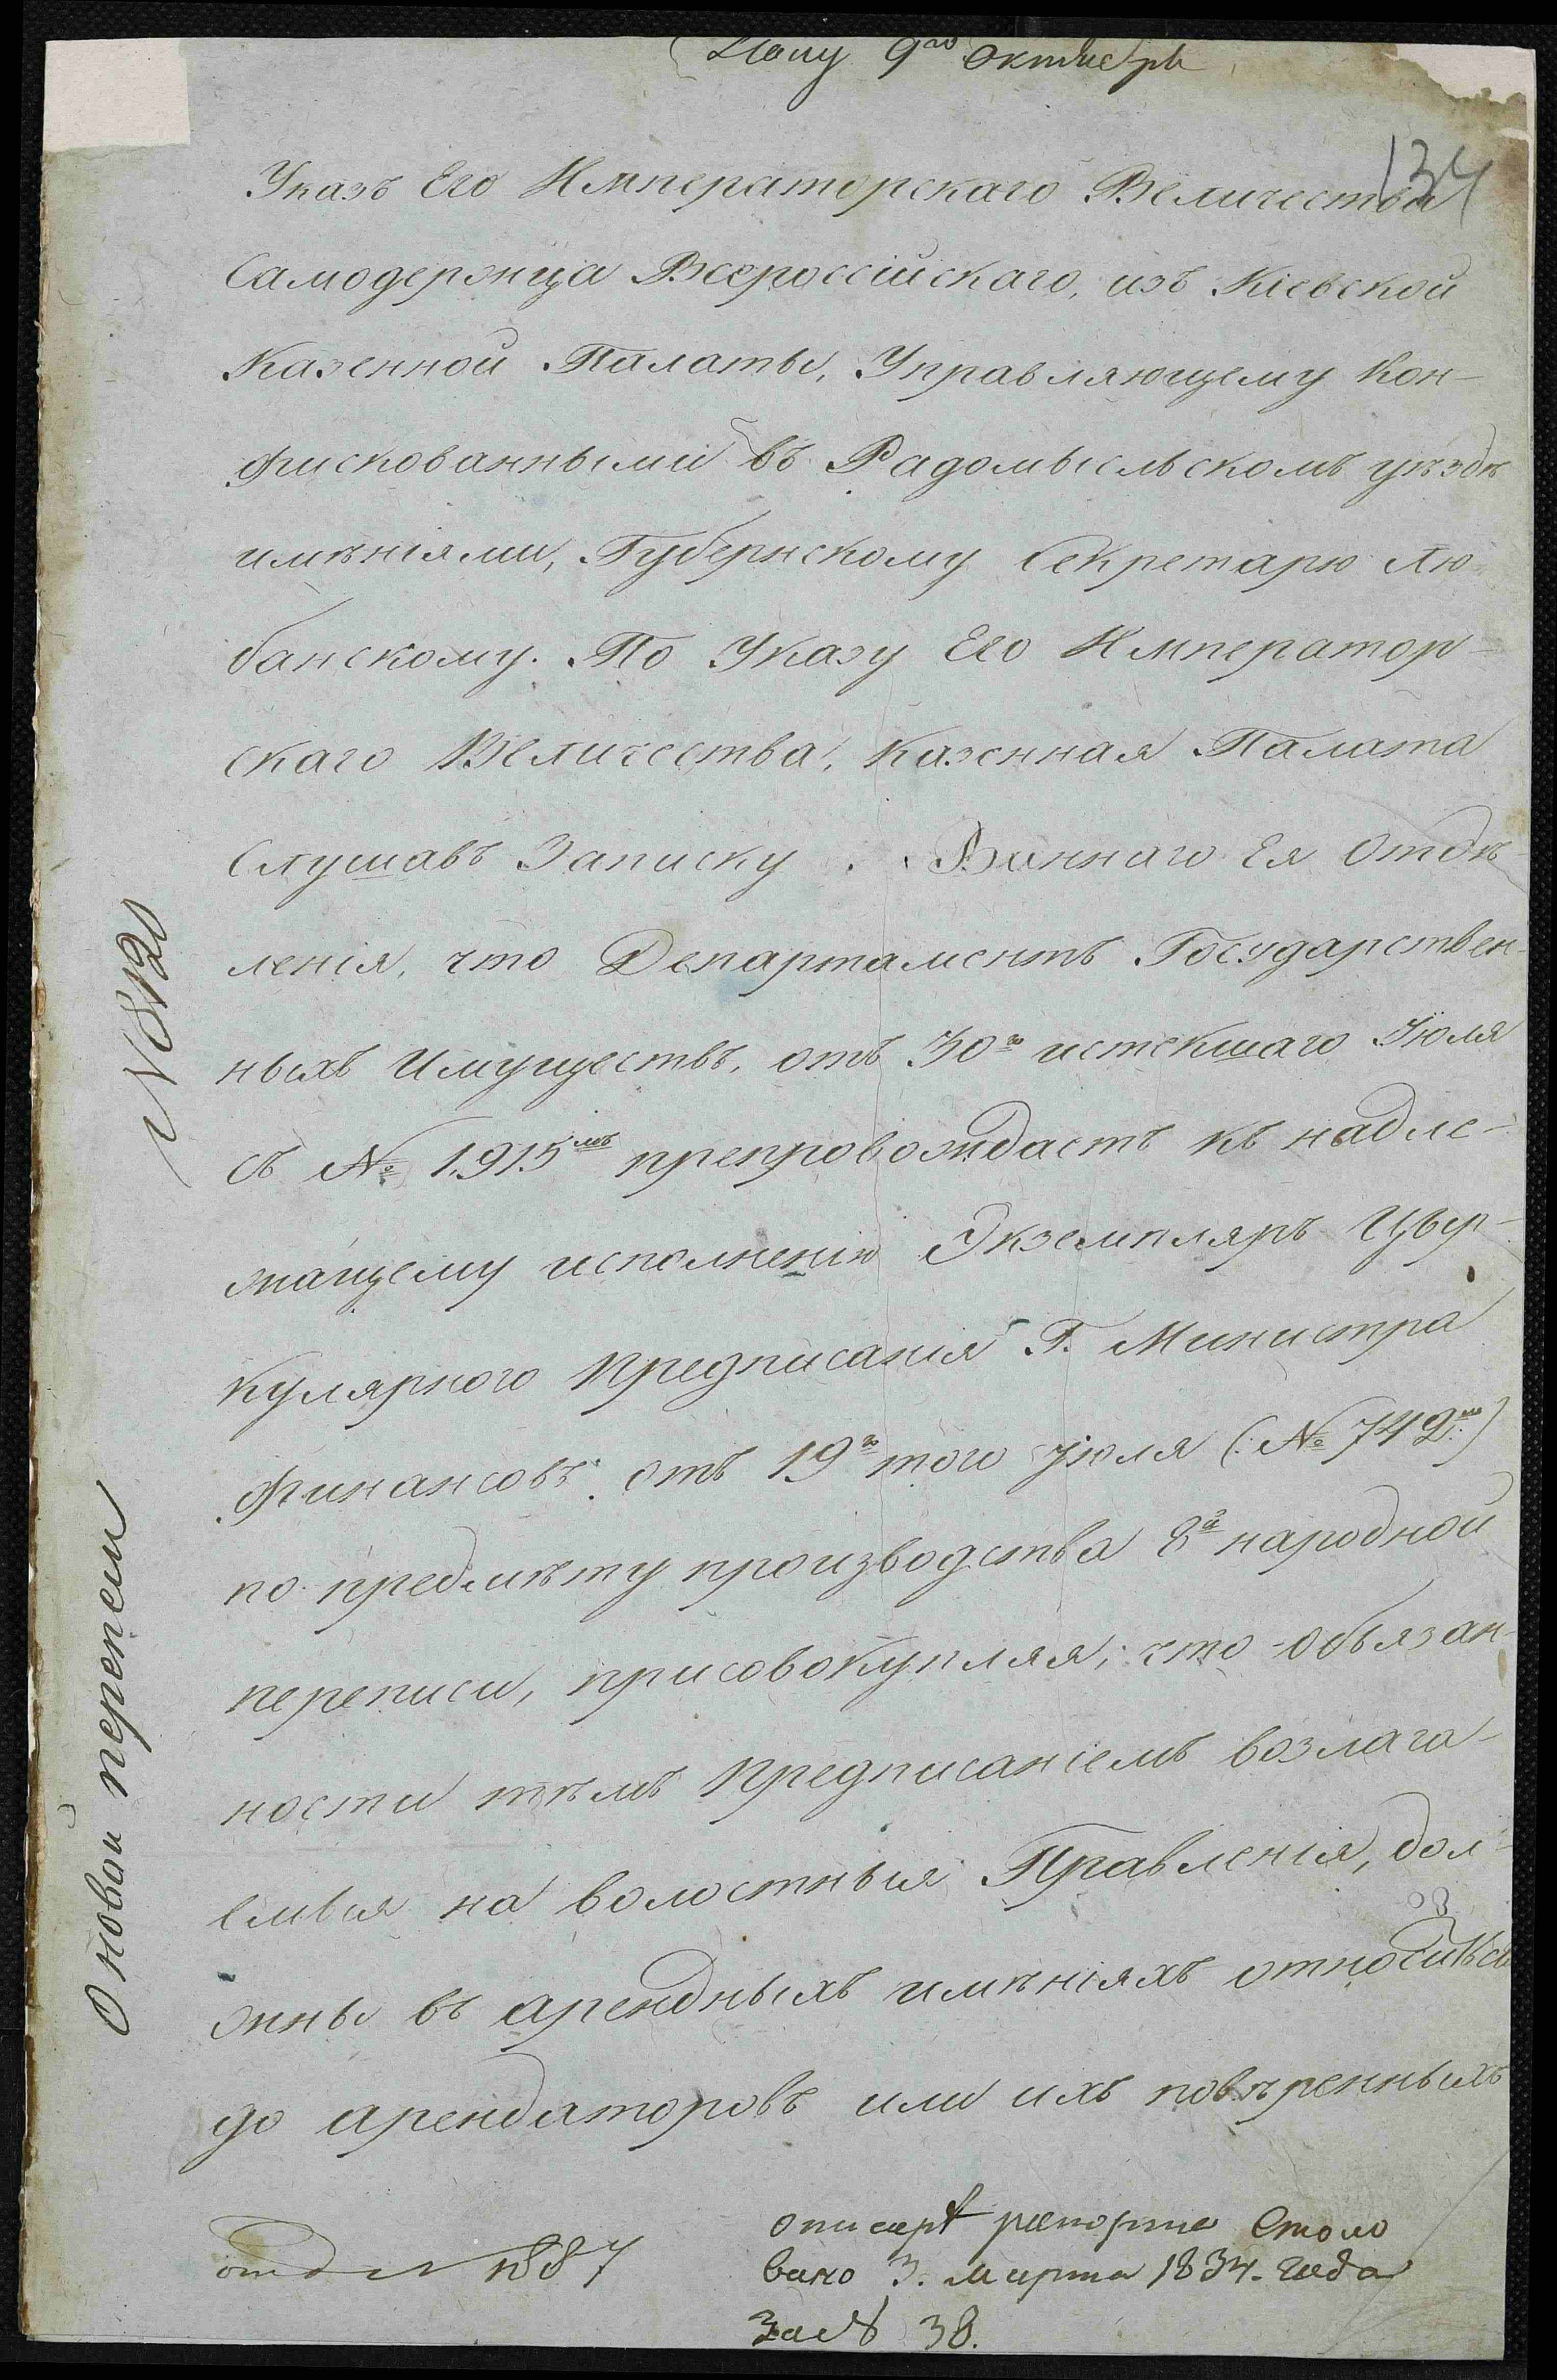 Полу 9го Октября
134
Указъ Его Императорскаго Величества
Самодержца Всероссійскаго, изъ Кіевской
Казенной Палаты, Управляющему Кон-
фискованными въ Радомысльскомъ уѣздѣ
имѣніями, Губернскому Секретарю Лю-
банскому. По Указу Его Император-
скаго Величества, Казенная Палата
Слушавъ Записку Виннаго Ея Отдѣ-
ленія, что Департаментъ Государствен-
ныхъ Имуществъ, отъ 30го истекшаго Іюля
съ № 1,915мъ препровождаетъ къ надле-
жащему исполненію Экземпляръ Цыр-
кулярного предписанія Г. Министра
Финансовъ отъ 19го того Іюля (: № 742м :)
по предмѣту производства 8й народной
переписи, присовокупляя, что обязан-
ности тѣмъ предписаніемъ возлага-
емыя на волостныя Правленія, дол-
жны въ арендныхъ имѣніяхъ относиться
до арендаторовъ или ихъ повѣренныхъ
№ 8120
О новой переписи
отд № 1887
рапортъ
3. Марта 1834. года
За № 38.